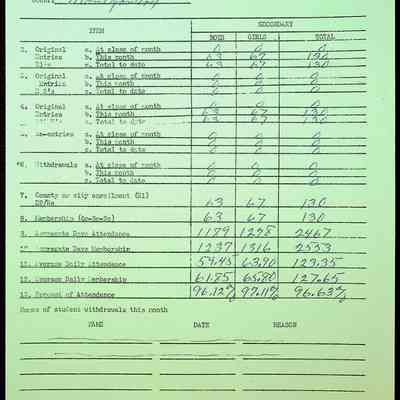 SECONDARY
ITEM BOYS GIRLS TOTAL
2. Original a. At close of month 0 0 0
Entries b. This month 63 67 130
E1's c. Total to date 63 67 130
3. Original a. At close of month 0 0 0
Entries b. This month 0 0 0
c. Total to date 0 0 0
4. Original a. At close of month 0 0 0
Entries b. This month 63 67 130
c. Total to date 63 67 130
5. Re-entries a. At close of month 0 0 0
b. This month 0 0 0
c. Total to date 0 0 0
*6. Withdrawals a. At close of month 0 0 0
b. This month 0 0 0
c. Total to date 0 0 0
7. County or city enrollment (E1)
63 67 130
8. Membership 63 67 130
9. Aggregate Days Attendance 1189 1278 2467
10. Aggregate Days Membership 1237 1316 2553
11. Average Daily Attendance 59.45 63.90 123.35
12. Average Daily Membership 61.85 65.80 127.65
13. Percent of Attendance 96.12% 97.11% 96.63%
Names of student withdrawals this month
NAME DATE REASON